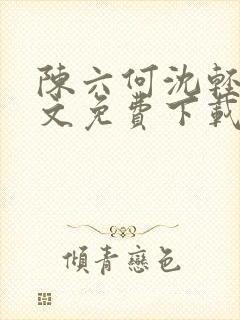 陳六何沈輕
文免費下載
傾青戀色